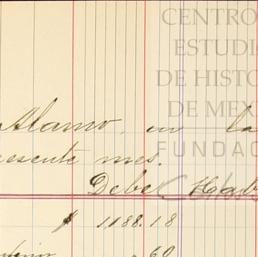 CENTRO
ESTUDI
DE HISTO
DE MEX
FUNDAC
Alamo, en la
esente mes.
Debe Hab
$ 1188.18
60